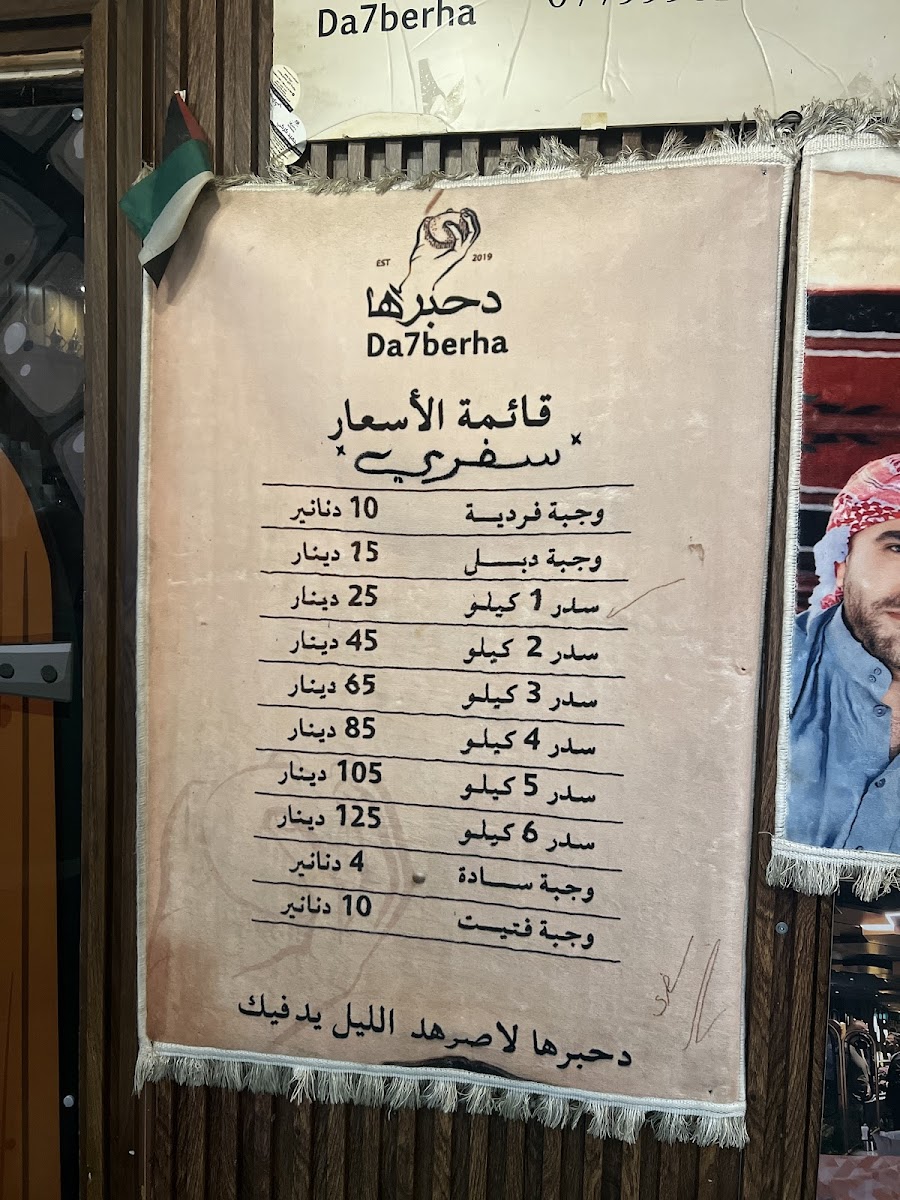 Da7berha
EST 2019
دحبرها
Da7berha
قائمة الأسعار
* سفري *
وجبة فرديـــة 10 دنانير
وجبة دبـــــل 15 دينار
سدر 1 كيلـو 25 دينار
سدر 2 كيلـو 45 دينار
سدر 3 كيلـو 65 دينار
سدر 4 كيلـو 85 دينار
سدر 5 كيلـو 105 دينار
سدر 6 كيلـو 125 دينار
وجبة ســـادة 4 دنانير
وجبة فتيـــت 10 دنانير
دحبرها لاصرهد الليل يدفيك